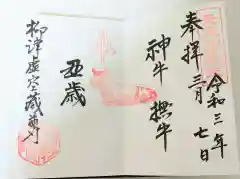 奉拝
令和三年
三月七日
神牛
撫牛
丑歳
柳津虚空蔵尊